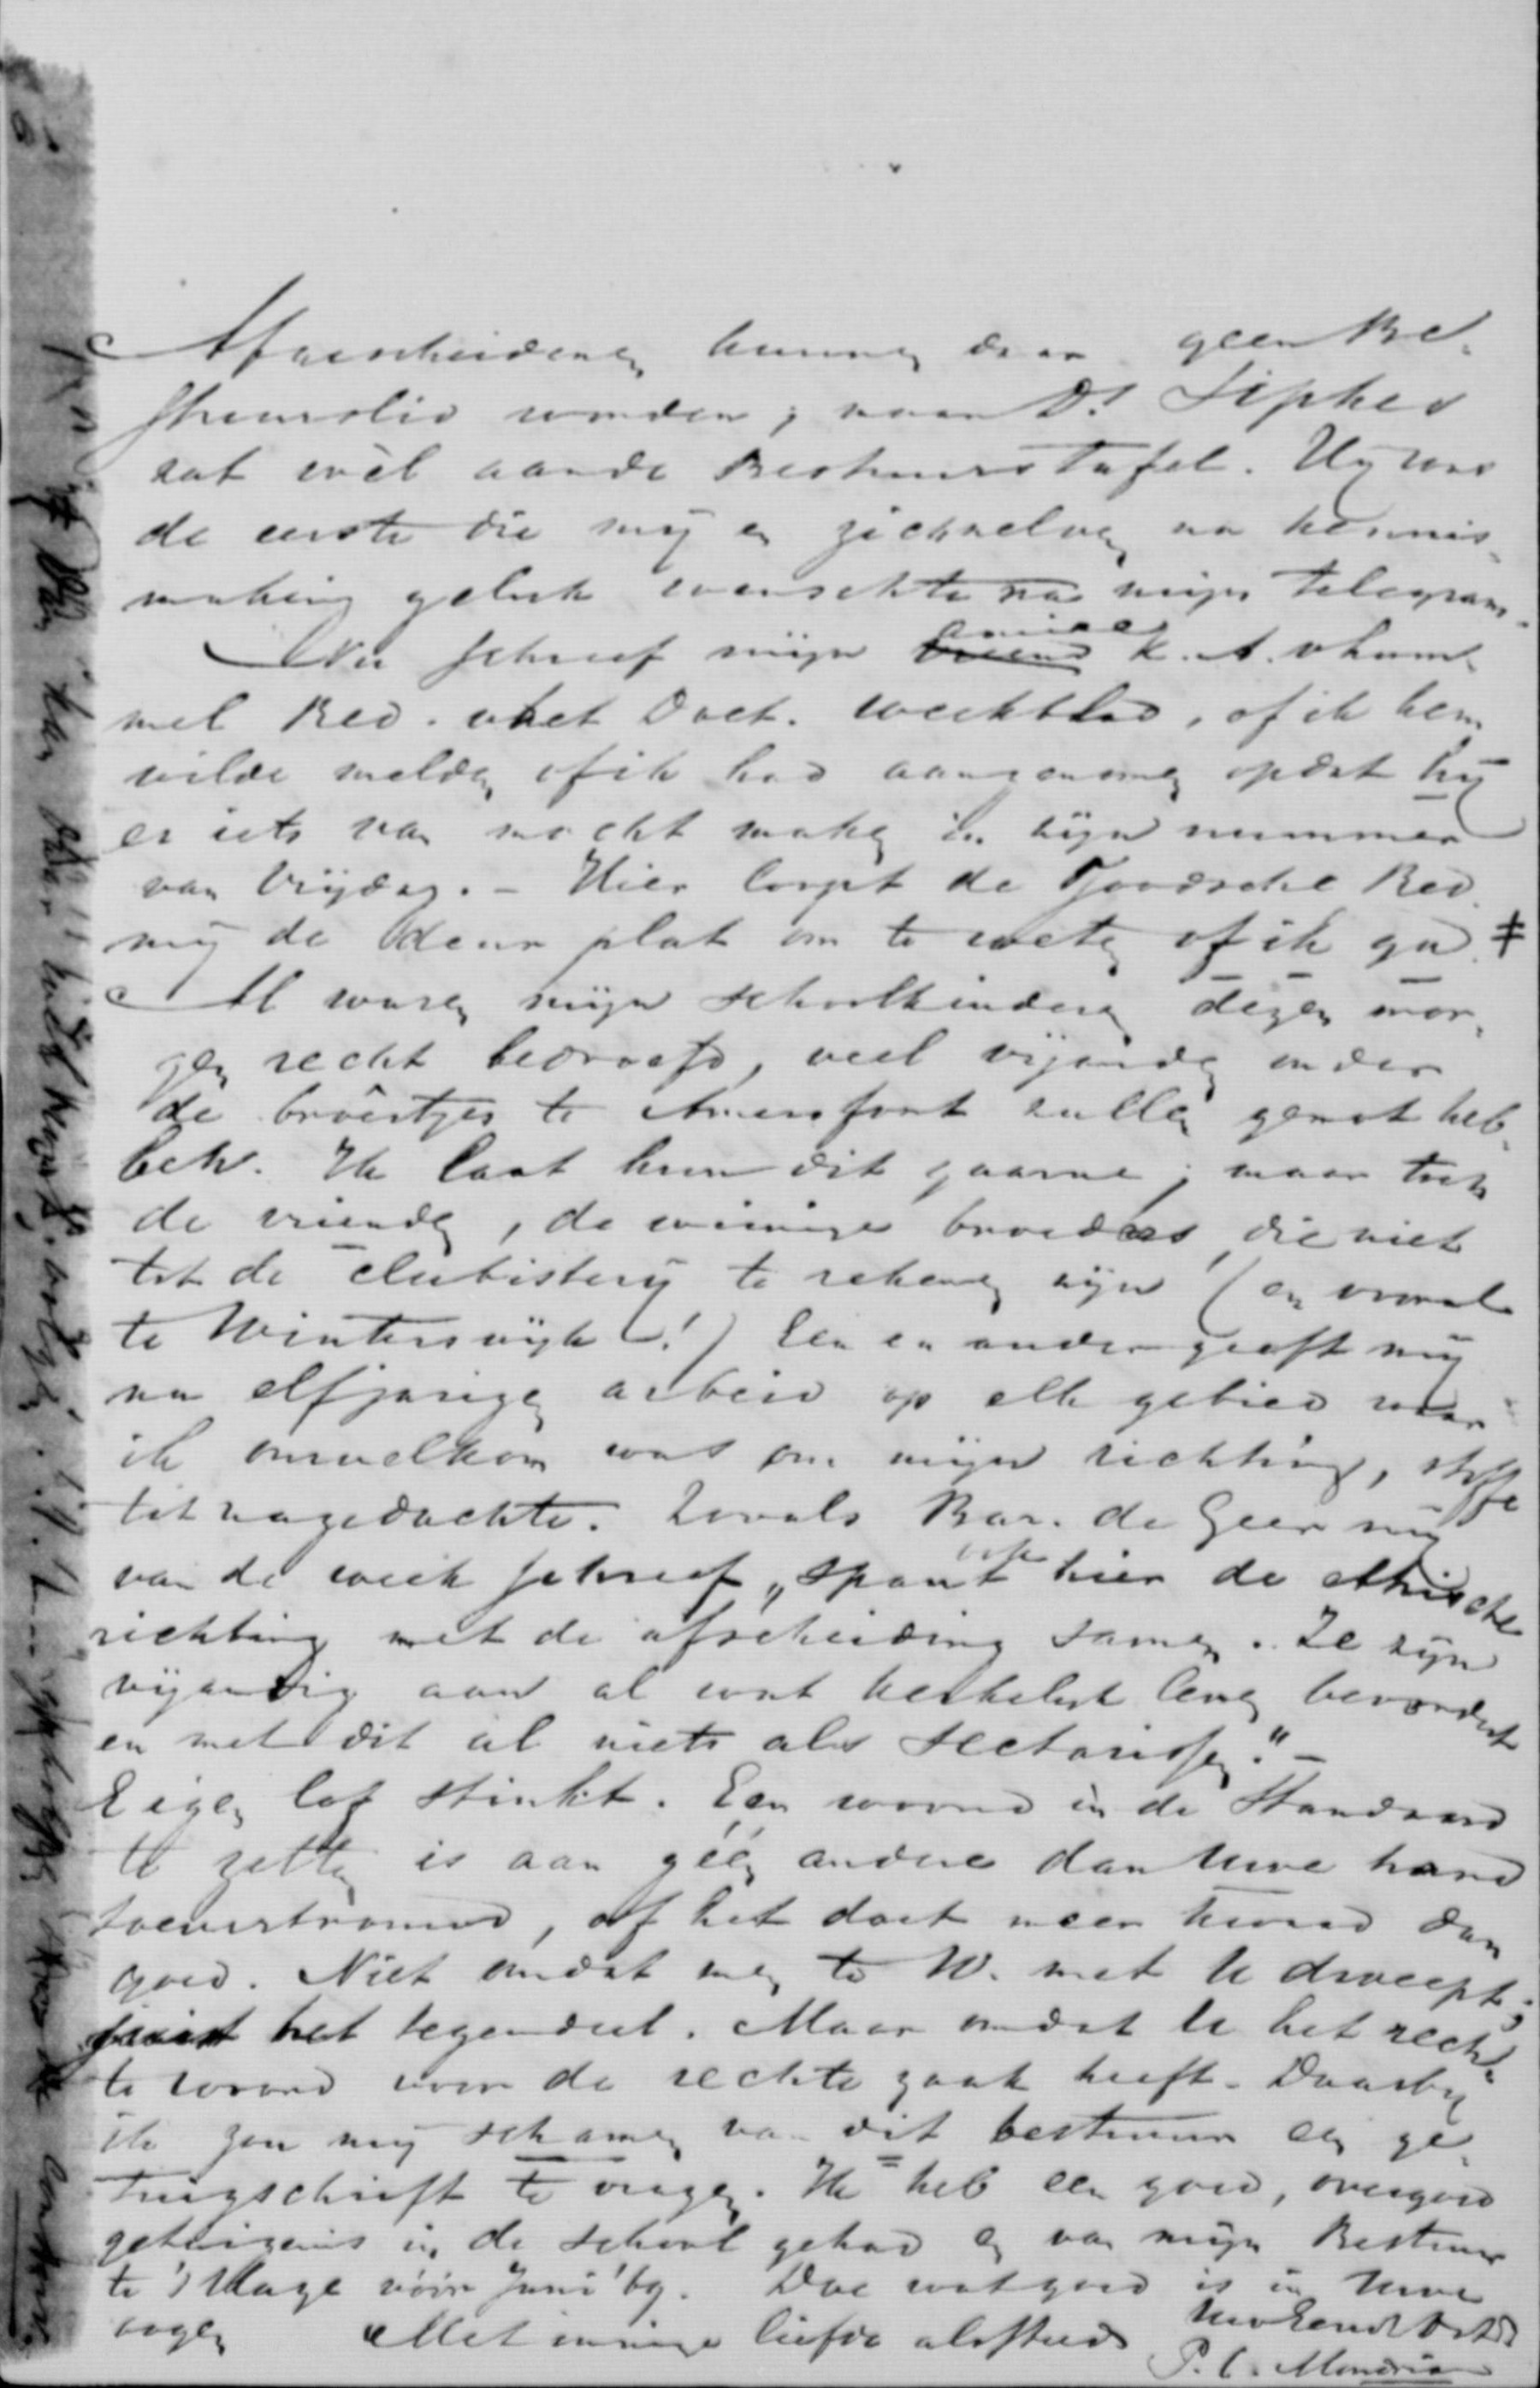 Afgescheidenen kunnen daar geen Be-
stuurslid worden; maar Ds Sipkes
zat wèl aan de Bestuurstafel. Hij was
de eerste die mij en zichzelven na kennis-
making geluk wenschte na mijn telegram.
Nu schreef mijn amice K. A. v
mel Red. v het Doet. weekblad, of ik hem
wilde melden of ik had aangenomen opdat hij
er iets van mocht maken in zijn nummer
van Vrijdag. - Hier loopt de Joodsche Red.
mij de deur plat om te weten of ik ga. ‡
Al waren mijn schoolkinderen dezen mor-
gen recht bedroefd, veel vijanden onder
de broêrtjes te Amersfoort zullen genot heb-
ben. Ik laat hun dit gaarne; maar toch
de vrienden, de weinige broeders die niet
tot de clubisterij te rekenen zijn (en vooral
te Winterswijk!) Een en ander geeft mij
na elfjarigen arbeid op elk gebied waar
ik onwelkom was om mijn richting, stoffe
tot nagedachte. Zooals Bar. de Geer mij
van de week schreef „spant ook hier de ethische
richting met de afscheiding samen. Ze zijn
vijandig aan al wat kerkelijk leven bevordert
en met dit al niets als Sectarissen." -
Eigen lof stinkt. Een woord in de Standaard
te zetten is aan géén andere dan Uwe hand
toevertrouwd, of het doet meer kwaad dan
goed. Niet omdat men te W. met U dweept;
juist het tegendeel. Maar omdat U het rech-
te woord voor de rechte zaak heeft. Daarbij
ik zou mij schamen van dit bestuur een ge-
tuigschrift te vragen. Ik heb een goed, overgoed
getuigenis in de school gehad en van mijn Bestuur
te 's Hage vóór Juni '69. Doe wat goed is in Uwe
oogen Met innige liefde als steeds
P. C. Mondriaan